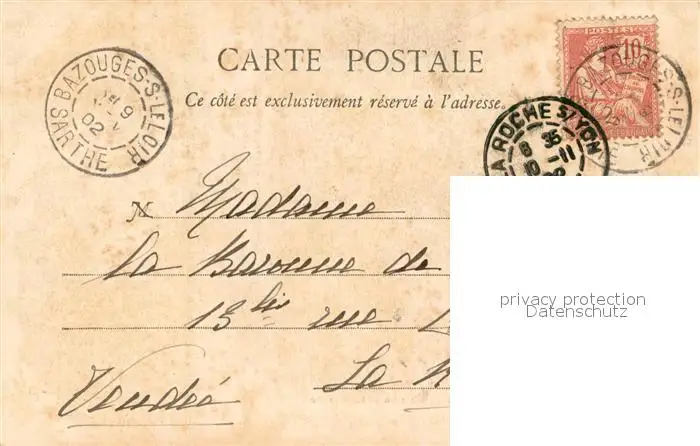 CARTE POSTALE
Ce côté est exclusivement réservé à l'adresse.
BAZOUGES-S-LE LOIR
9
02
SARTHE
POSTES
10
BAZOUGES-S-LE LOIR
LA ROCHE S/YON
8 35
10 -11
02
Madame
la Baronne de
15 bis rue
La R
Vendée
privacy protection
Datenschutz